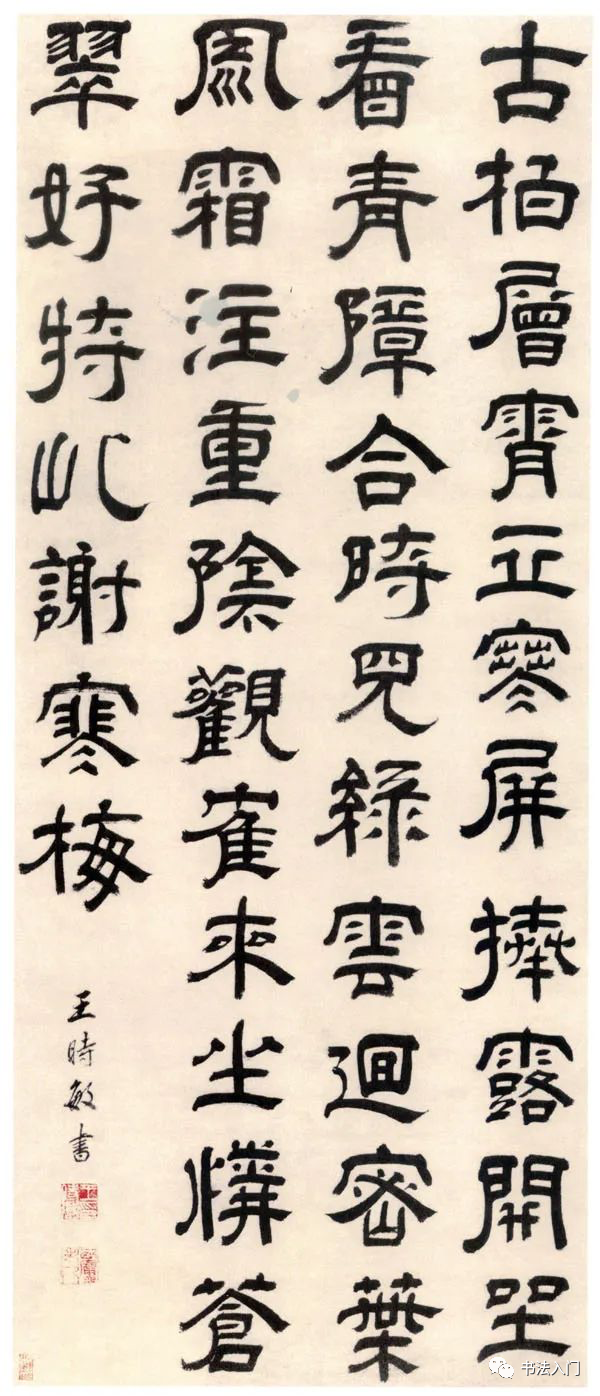 古栢層霄立寒屏捧露開坐
看青障合時見綠雲迴密葉
風霜注重陰觀雀來坐憐蒼
翠好持此謝寒梅
王時敏書
书法入门